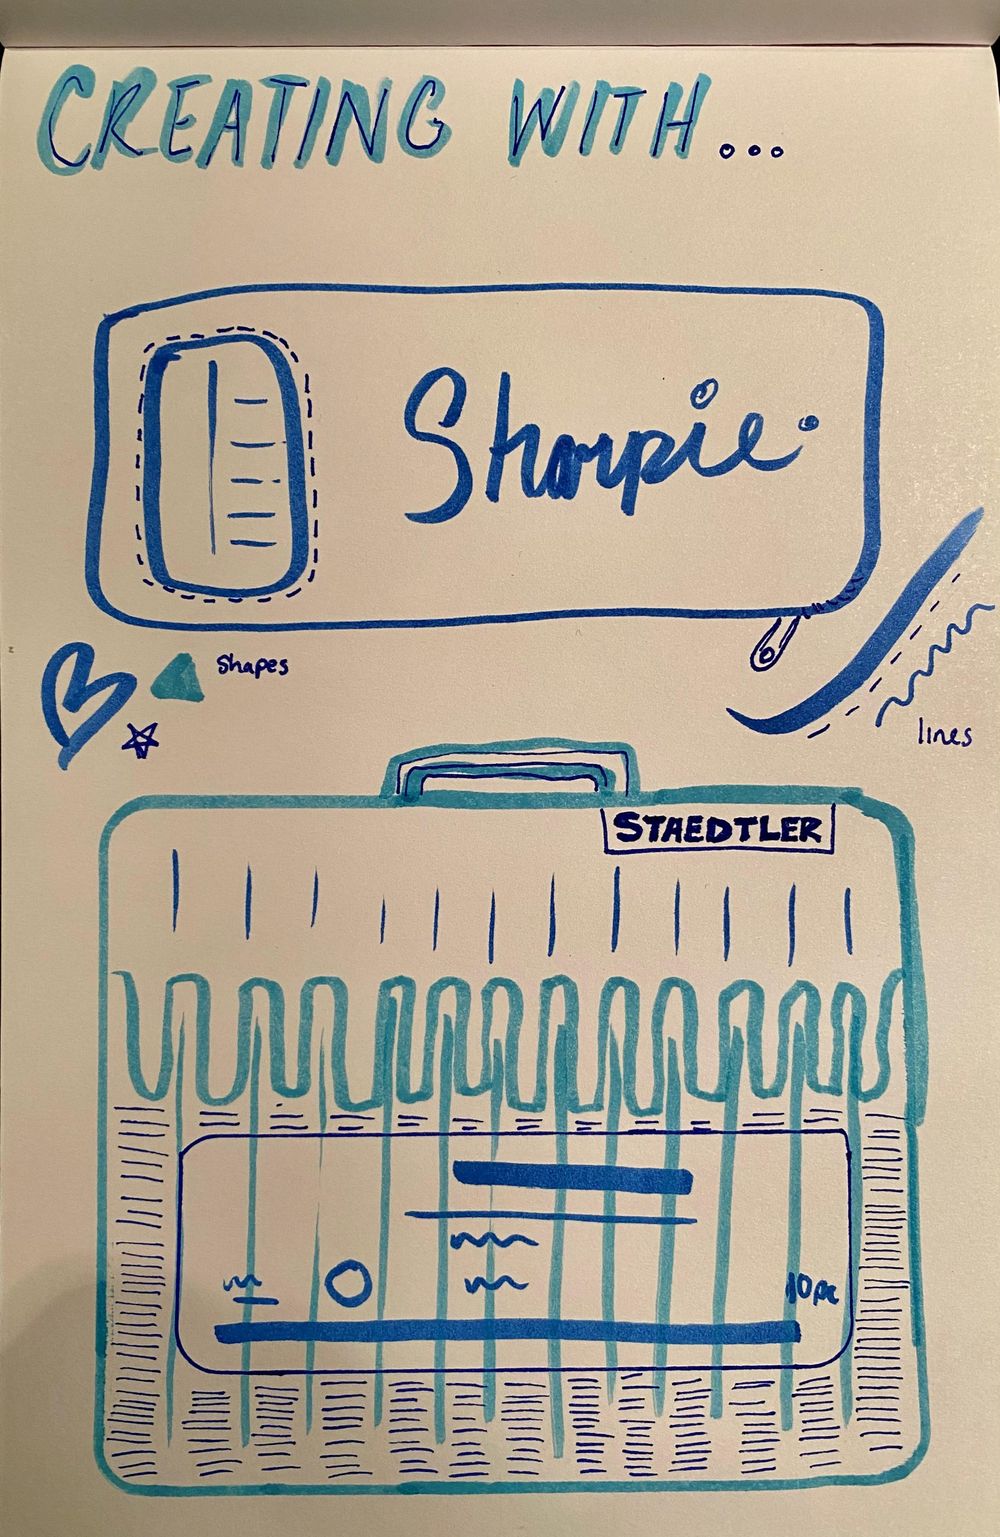 CREATING WITH...
Sharpie.
Shapes
lines
STAEDTLER
10pc